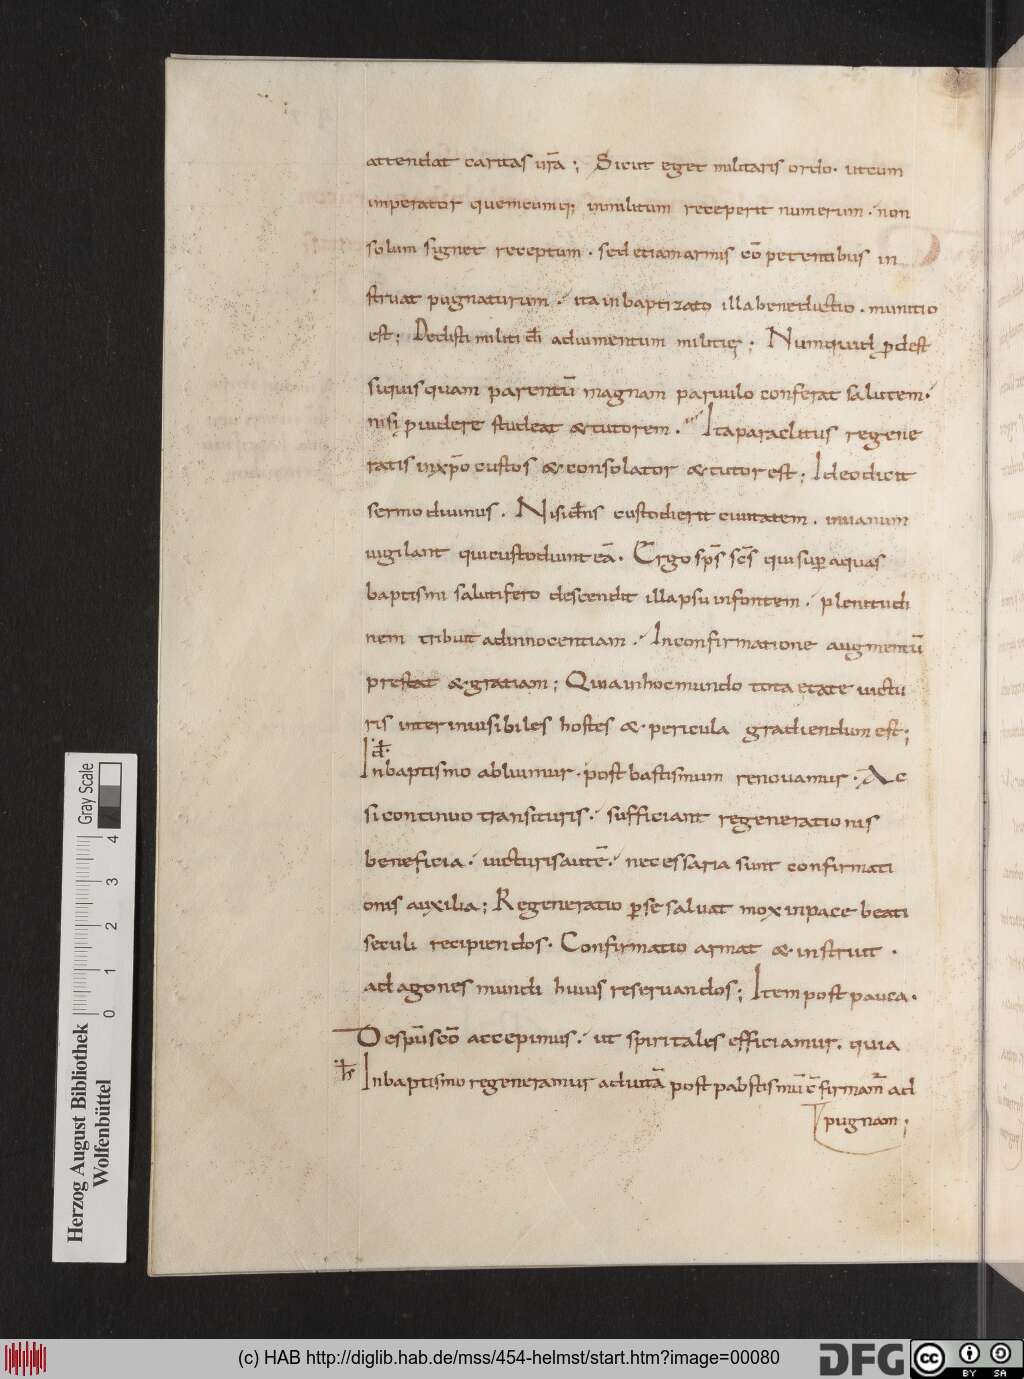 attendat caritas ur̄a; Sicut eget militaris ordo. utcum
imperator quemcumq; inmilitum receperit numerum. non
solum signet receptum. sed etiam armis cō petentibus in
struat pugnaturum. ita in baptizato illa benedictio. munitio
est; Dedisti militi adiumentum militię; Numquid ꝓdest
siquis quam parentū magnam paruulo conferat salutem.
nisi ꝓuidere studeat & tutorem. Ita paraclitus regene
ratis inxp̄o custos & consolator & tutor est; Ideo dicit
sermo diuinus. Nisi dn̄s custodierit ciuitatem. inuanum
uigilant qui custodiunt eā. Ergo sp̄s sc̄s qui suꝑ aquas
baptismi salutifero descendit illapsu infontem. plenitudi
nem tribuit ad innocentiam. Inconfirmatione augmentū
prestat & gratiam; Quia in hoc mundo tota etate uictu
ris inter inuisibiles hostes & pericula gradiendum est;
Inbaptismo abluimur. post baftismum renouamur. Ac
si continuo transituris. sufficiant regenerationis
beneficia. uicturis autē. necessaria sunt confirmati
onis auxilia; Regeneratio ꝑ se saluat mox inpace beati
seculi recipiendos. Confirmatio armat & instruit.
ad agones mundi huius reseruandos; Item post pauca.
De spū sc̄o accepimus. ut spiritales efficiamur. quia
Inbaptismo regeneramur ad uitā post pabstismū c̄firmam̄ ad
pugnam;
Gray Scale
0 1 2 3 4
Herzog August Bibliothek
Wolfenbüttel
(c) HAB http://diglib.hab.de/mss/454-helmst/start.htm?image=00080
DFG
cc
BY SA